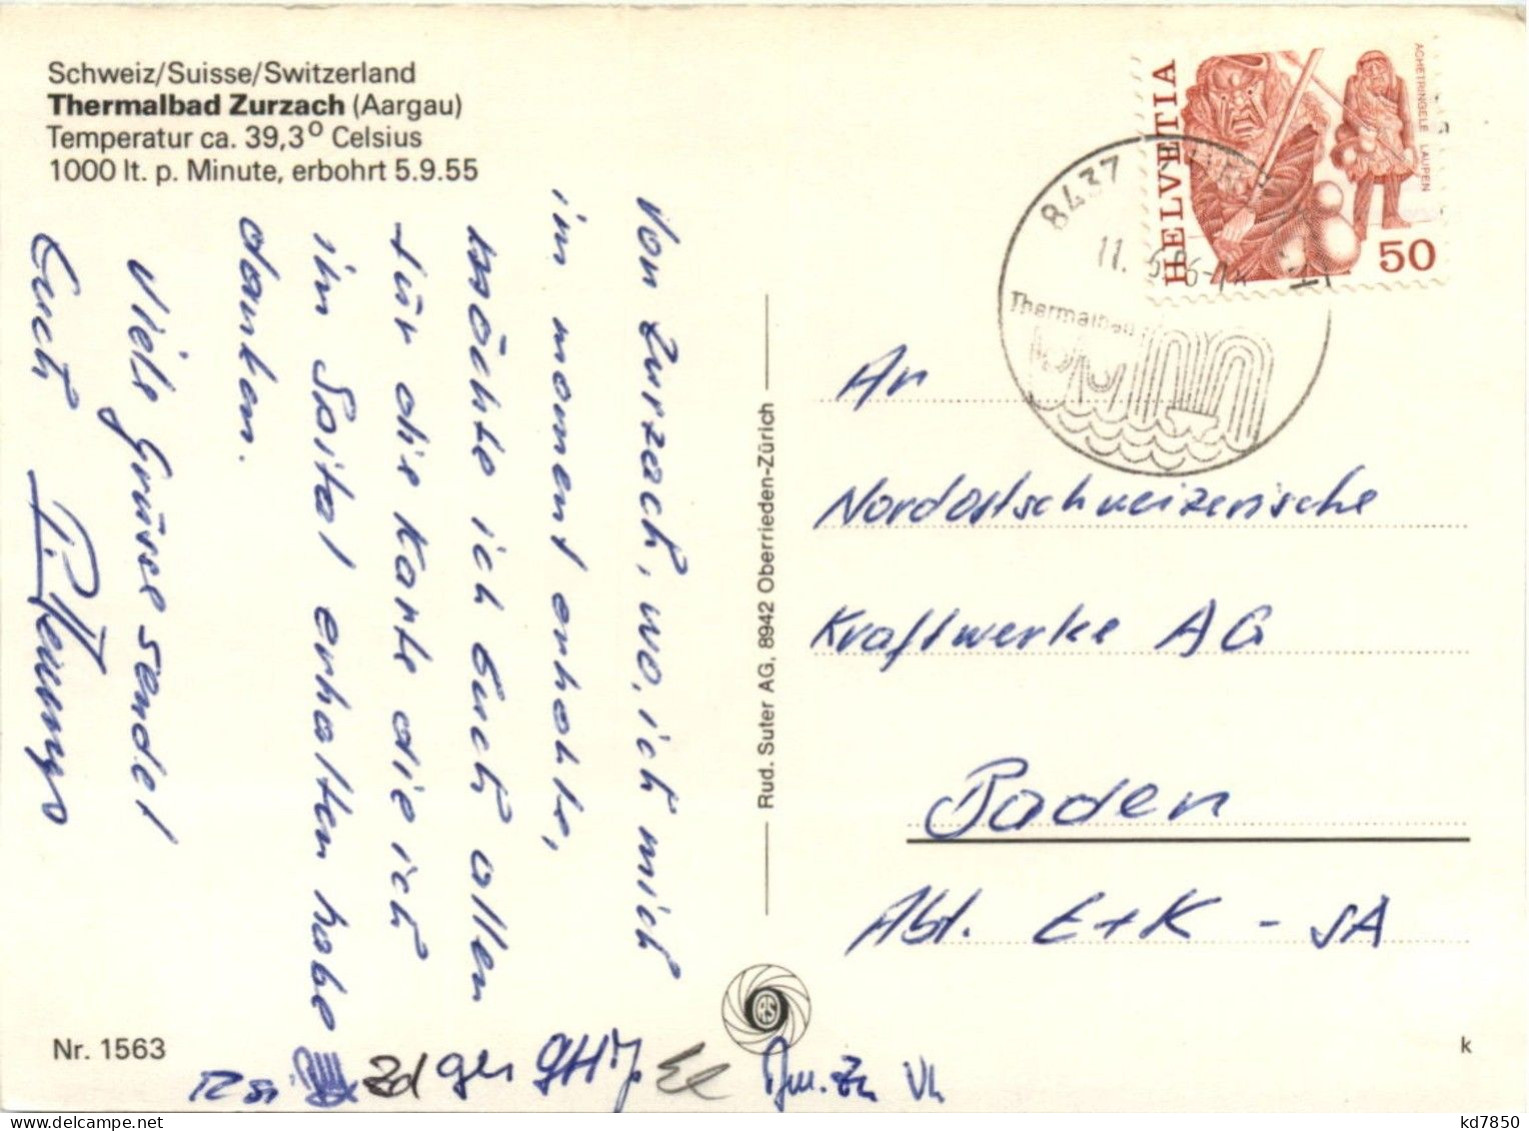 Schweiz/Suisse/Switzerland
Thermalbad Zurzach (Aargau)
Temperatur ca. 39,3° Celsius
1000 lt. p. Minute, erbohrt 5.9.55
Von Zurzach, wo, ich mich
im moment erhohle,
möchte ich Euch allen
für die Karte die ich
im Spital erhalten habe
danken.
Viele Grüsse sendet
Euch
Rud. Suter AG, 8942 Oberrieden-Zürich
HELVETIA
ACHETRINGELE LAUPEN
50
8437
11.
Thermalbad
An
Nordostschweizerische
Kraftwerke AG
Baden
Abt. E+K - SA
Nr. 1563
k
kd7850